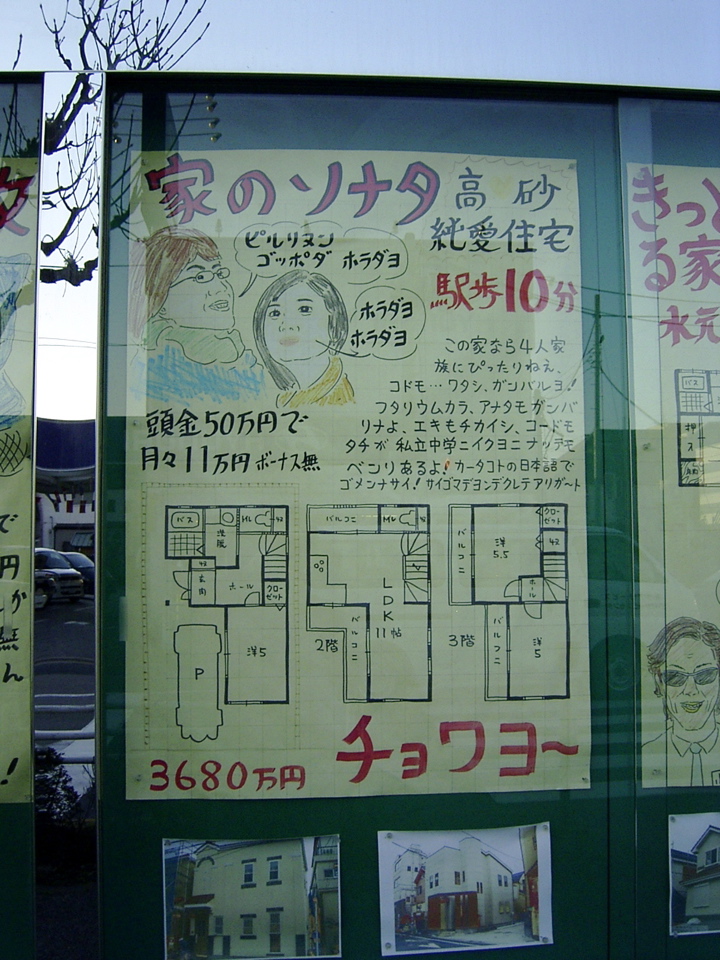 家のソナタ
高砂
純愛住宅
ピルリヌン
ゴッポダ ホラダヨ
ホラダヨ
ホラダヨ
駅歩10分
この家なら4人家
族にぴったりねえ、
コドモ…ワタシ、ガンバルヨ!
フタリウムカラ、アナタモガンバ
リナよ、エキもチカイシ、コードモ
タチが私立中学ニイクヨニナッテモ
ベンリあるよ!カータコトの日本語で
ゴメンナサイ!サイゴマデヨンデクレテアリガート
頭金50万円で
月々11万円ボーナス無
バス
洗面
WC
収
収
玄関
ホール
クローゼット
洋5
P
バルコニ
WC
収
LDK
11帖
バルコニ
2階
バルコニ
洋
5.5
クローゼット
収
ホール
バルコニ
洋
5
3階
3680万円
チョワヨ~
きっと
る家
水元
バス
押
で
円
か
無
ん
!